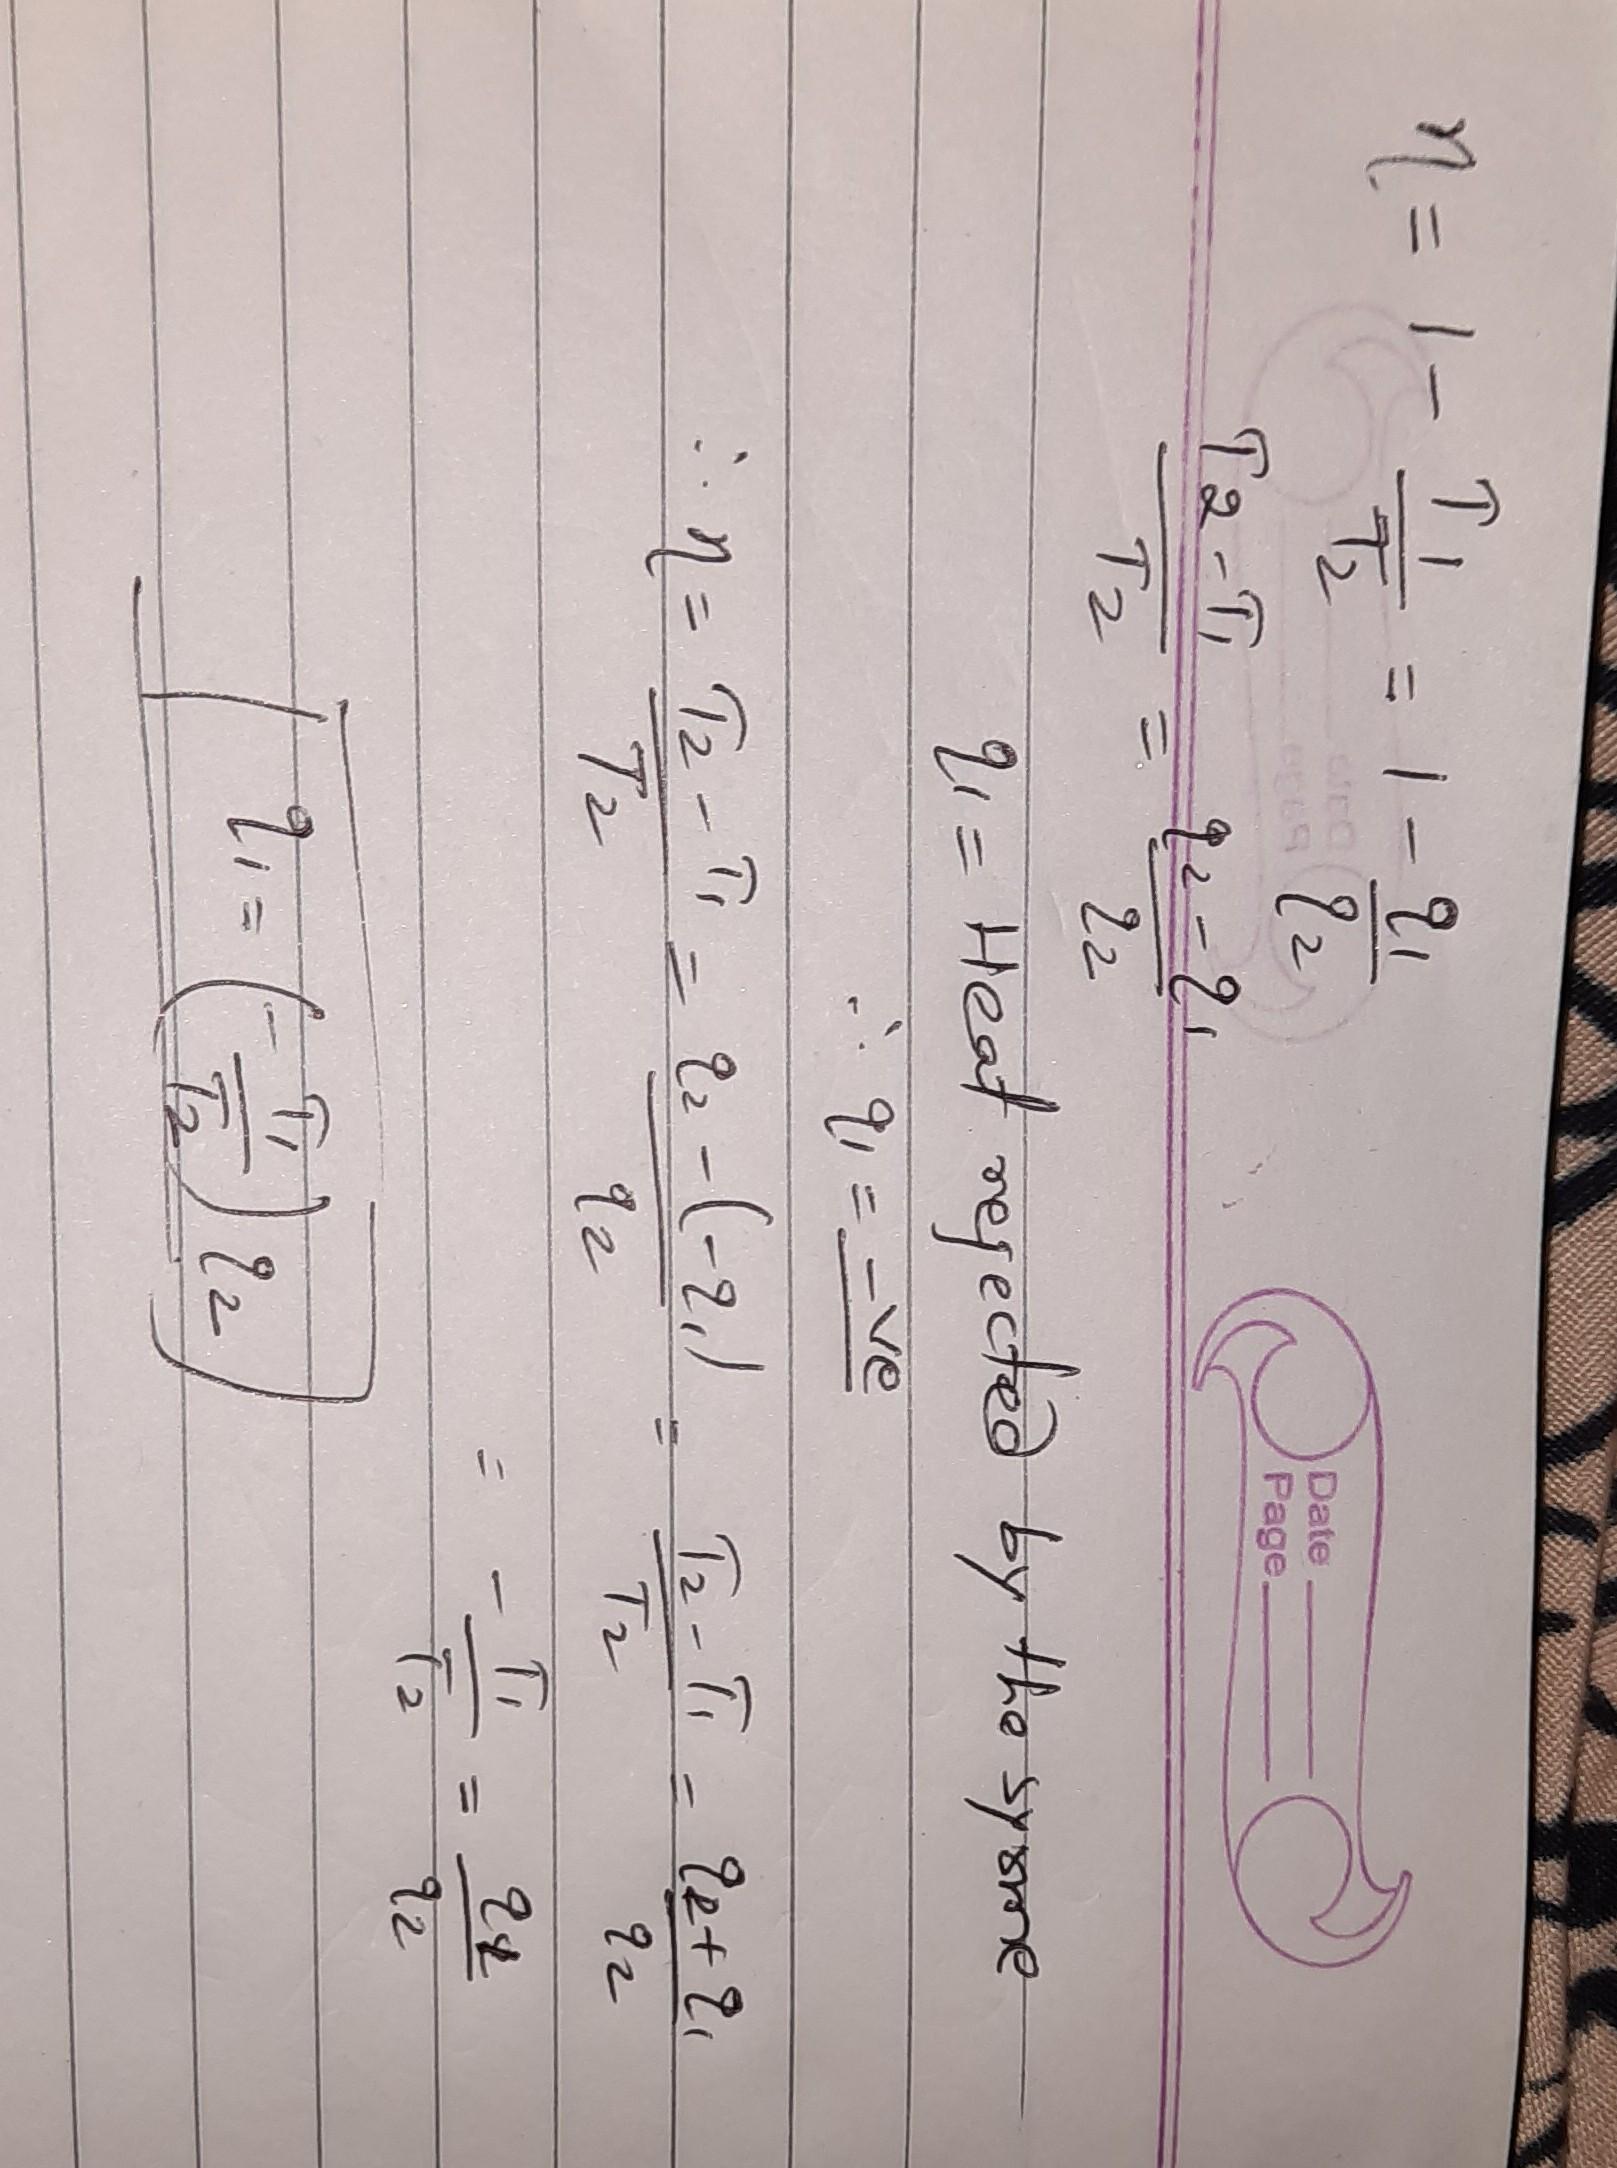 η = 1 - T1/T2 = 1 - q1/q2
Date
Page
T2 - T1/T2 = q2 - q1/q2
q1 = Heat rejected by the sysme
∴ q1 = -ve
∴ η = T2 - T1/T2 = q2 - (-q1)/q2 = T2 - T1/T2 = q2 + q1/q2
= - T1/T2 = q1/q2
q1 = (- T1/T2) q2